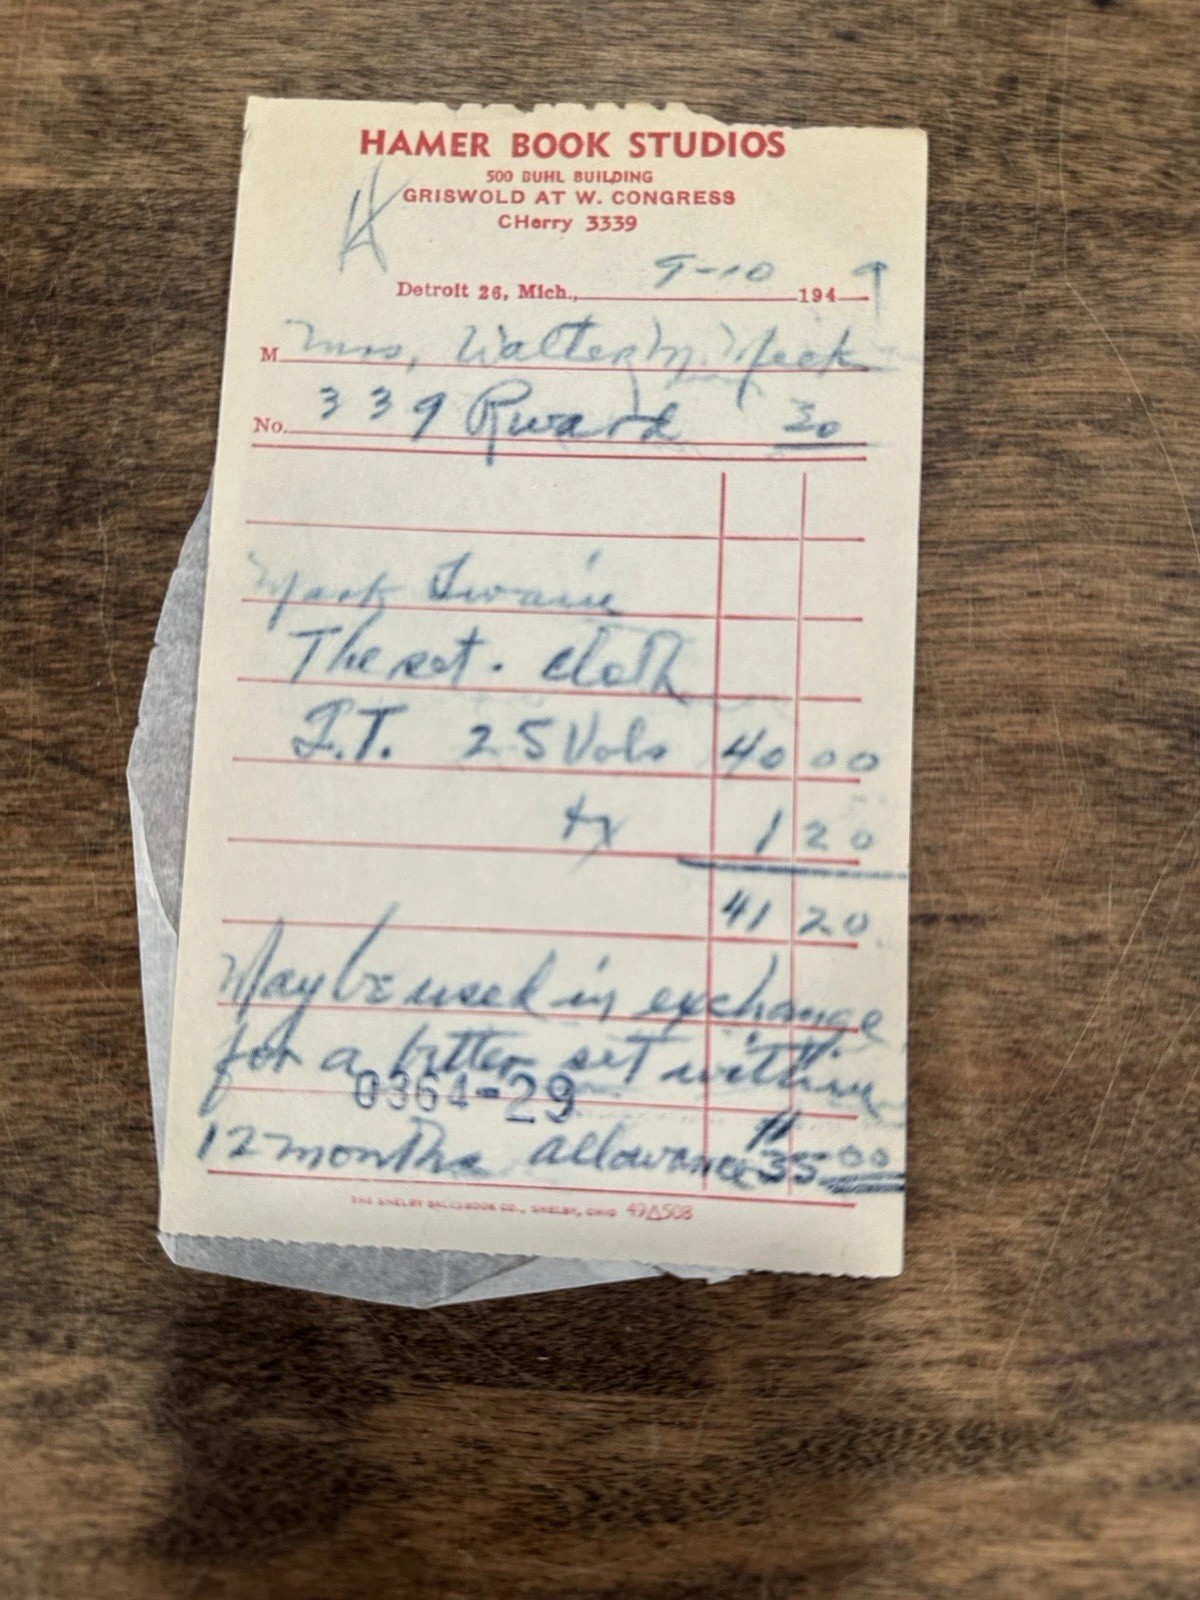 HAMER BOOK STUDIOS
500 BUHL BUILDING
GRISWOLD AT W. CONGRESS
CHerry 3339
Detroit 26, Mich., 9-10 1949
M Mrs, Walter M. Meek
No. 339 30
Mark Twain
The set. cloth
25 Vols 40 00
tx 1 20
41 20
May be used in exchange
for a better set within
0364-29
12 months allowance 35 00
THE SHELBY SALESBOOK CO., SHELBY, OHIO 49△508